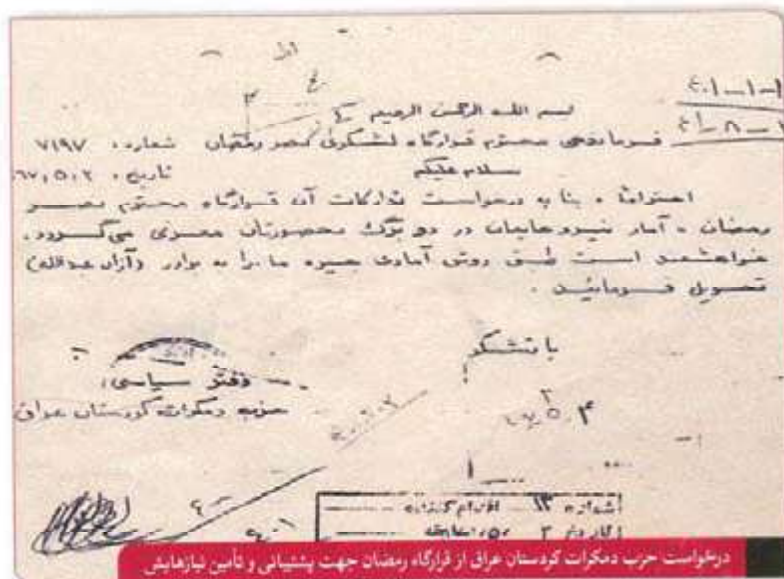 بسم الله الرحمن الرحیم
فرماندهی محترم قرارگاه لشکری نصر رمضان شماره: ۷۱۹۷
سلام علیکم تاریخ: ۶۷،۵،۲
احتراماً، بنا به درخواست تدارکات آن قرارگاه محترم نصر
رمضان، آمار نیروهایمان در دو برگ بحضورتان معرفی می‌گردد.
خواهشمند است طبق روش آماری جیره ما را به برادر (آزاد عبدالله)
تحویل فرمائید.
با تشکر
دفتر سیاسی
حزب دمکرات کوردستان عراق
شماره ۱۳ اقدام کننده
درخواست حزب دمکرات کردستان عراق از قرارگاه رمضان جهت پشتیبانی و تأمین نیازهایش